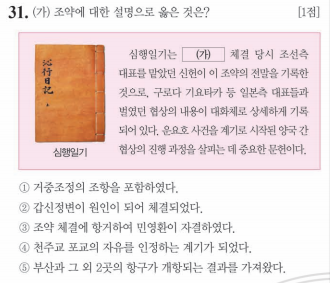 31. (가) 조약에 대한 설명으로 옳은 것은? [1점]
심행일기는 (가) 체결 당시 조선측
대표를 맡았던 신헌이 이 조약의 전말을 기록한
것으로, 구로다 기요타카 등 일본측 대표들과
벌였던 협상의 내용이 대화체로 상세하게 기록
되어 있다. 운요호 사건을 계기로 시작된 양국 간
협상의 진행 과정을 살피는 데 중요한 문헌이다.
沁行日記
심행일기
① 거중조정의 조항을 포함하였다.
② 갑신정변이 원인이 되어 체결되었다.
③ 조약 체결에 항거하여 민영환이 자결하였다.
④ 천주교 포교의 자유를 인정하는 계기가 되었다.
⑤ 부산과 그 외 2곳의 항구가 개항되는 결과를 가져왔다.